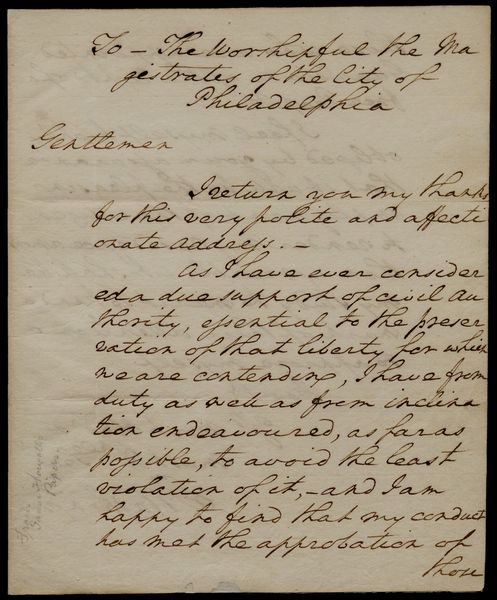 To — The Worshipful the Ma
gistrates of the City of
Philadelphia
Gentlemen
I return you my thanks
for this very polite and affecti
onate address. —
As I have ever consider
ed a due support of civil au
thority, essential to the preser
vation of that liberty for which
we are contending, I have from
duty as well as from inclina
tion endeavoured, as far as
possible, to avoid the least
violation of it, – and I am
happy to find that my conduct
has met the approbation of
those
Papers